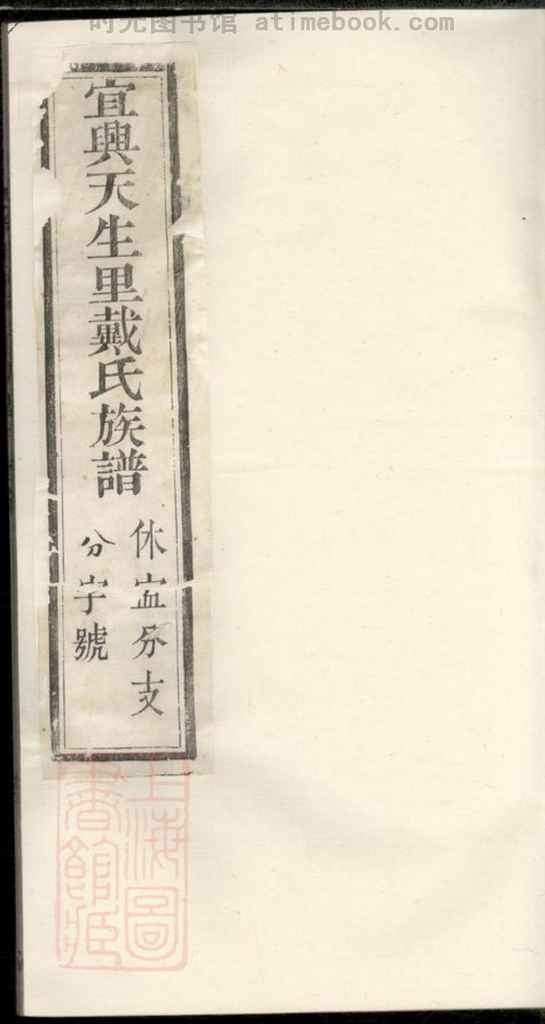 时光图书馆 atimebook.com
宜興天生里戴氏族譜
休寍分支
分字號
上海圖
書館藏